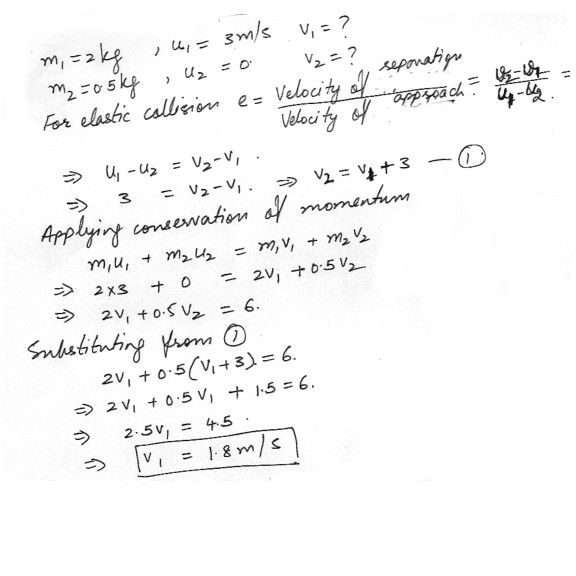 m₁ = 2 kg , u₁ = 3 m/s v₁ = ?
m₂ = 0.5 kg , u₂ = 0. v₂ = ?
For elastic collision e = Velocity of separation / Velocity of approach = v₂-v₁ / u₁-u₂ =
⇒ u₁ - u₂ = v₂ - v₁ .
⇒ 3 = v₂ - v₁ . ⇒ v₂ = v₁ + 3 — ①
Applying conservation of momentum
m₁u₁ + m₂u₂ = m₁v₁ + m₂v₂
⇒ 2×3 + 0 = 2v₁ + 0.5v₂
⇒ 2v₁ + 0.5v₂ = 6.
Substituting from ①
2v₁ + 0.5(v₁+3) = 6.
⇒ 2v₁ + 0.5v₁ + 1.5 = 6.
⇒ 2.5v₁ = 4.5 .
⇒ v₁ = 1.8 m/s